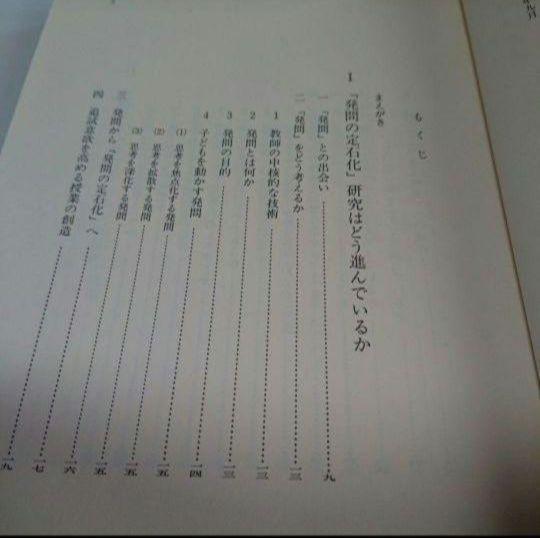 もくじ
まえがき
Ⅰ 「発問の定石化」研究はどう進んでいるか
一 「発問」との出会い……九
二 「発問」をどう考えるか……一三
1 教師の中核的な技術……一三
2 発問とは何か……一三
3 発問の目的……一四
4 子どもを動かす発問……一五
(1) 思考を焦点化する発問……一五
(2) 思考を拡散する発問……一五
(3) 思考を深化する発問……一六
三 発問から「発問の定石化」へ……一七
四 追試意欲を高める授業の創造……一九